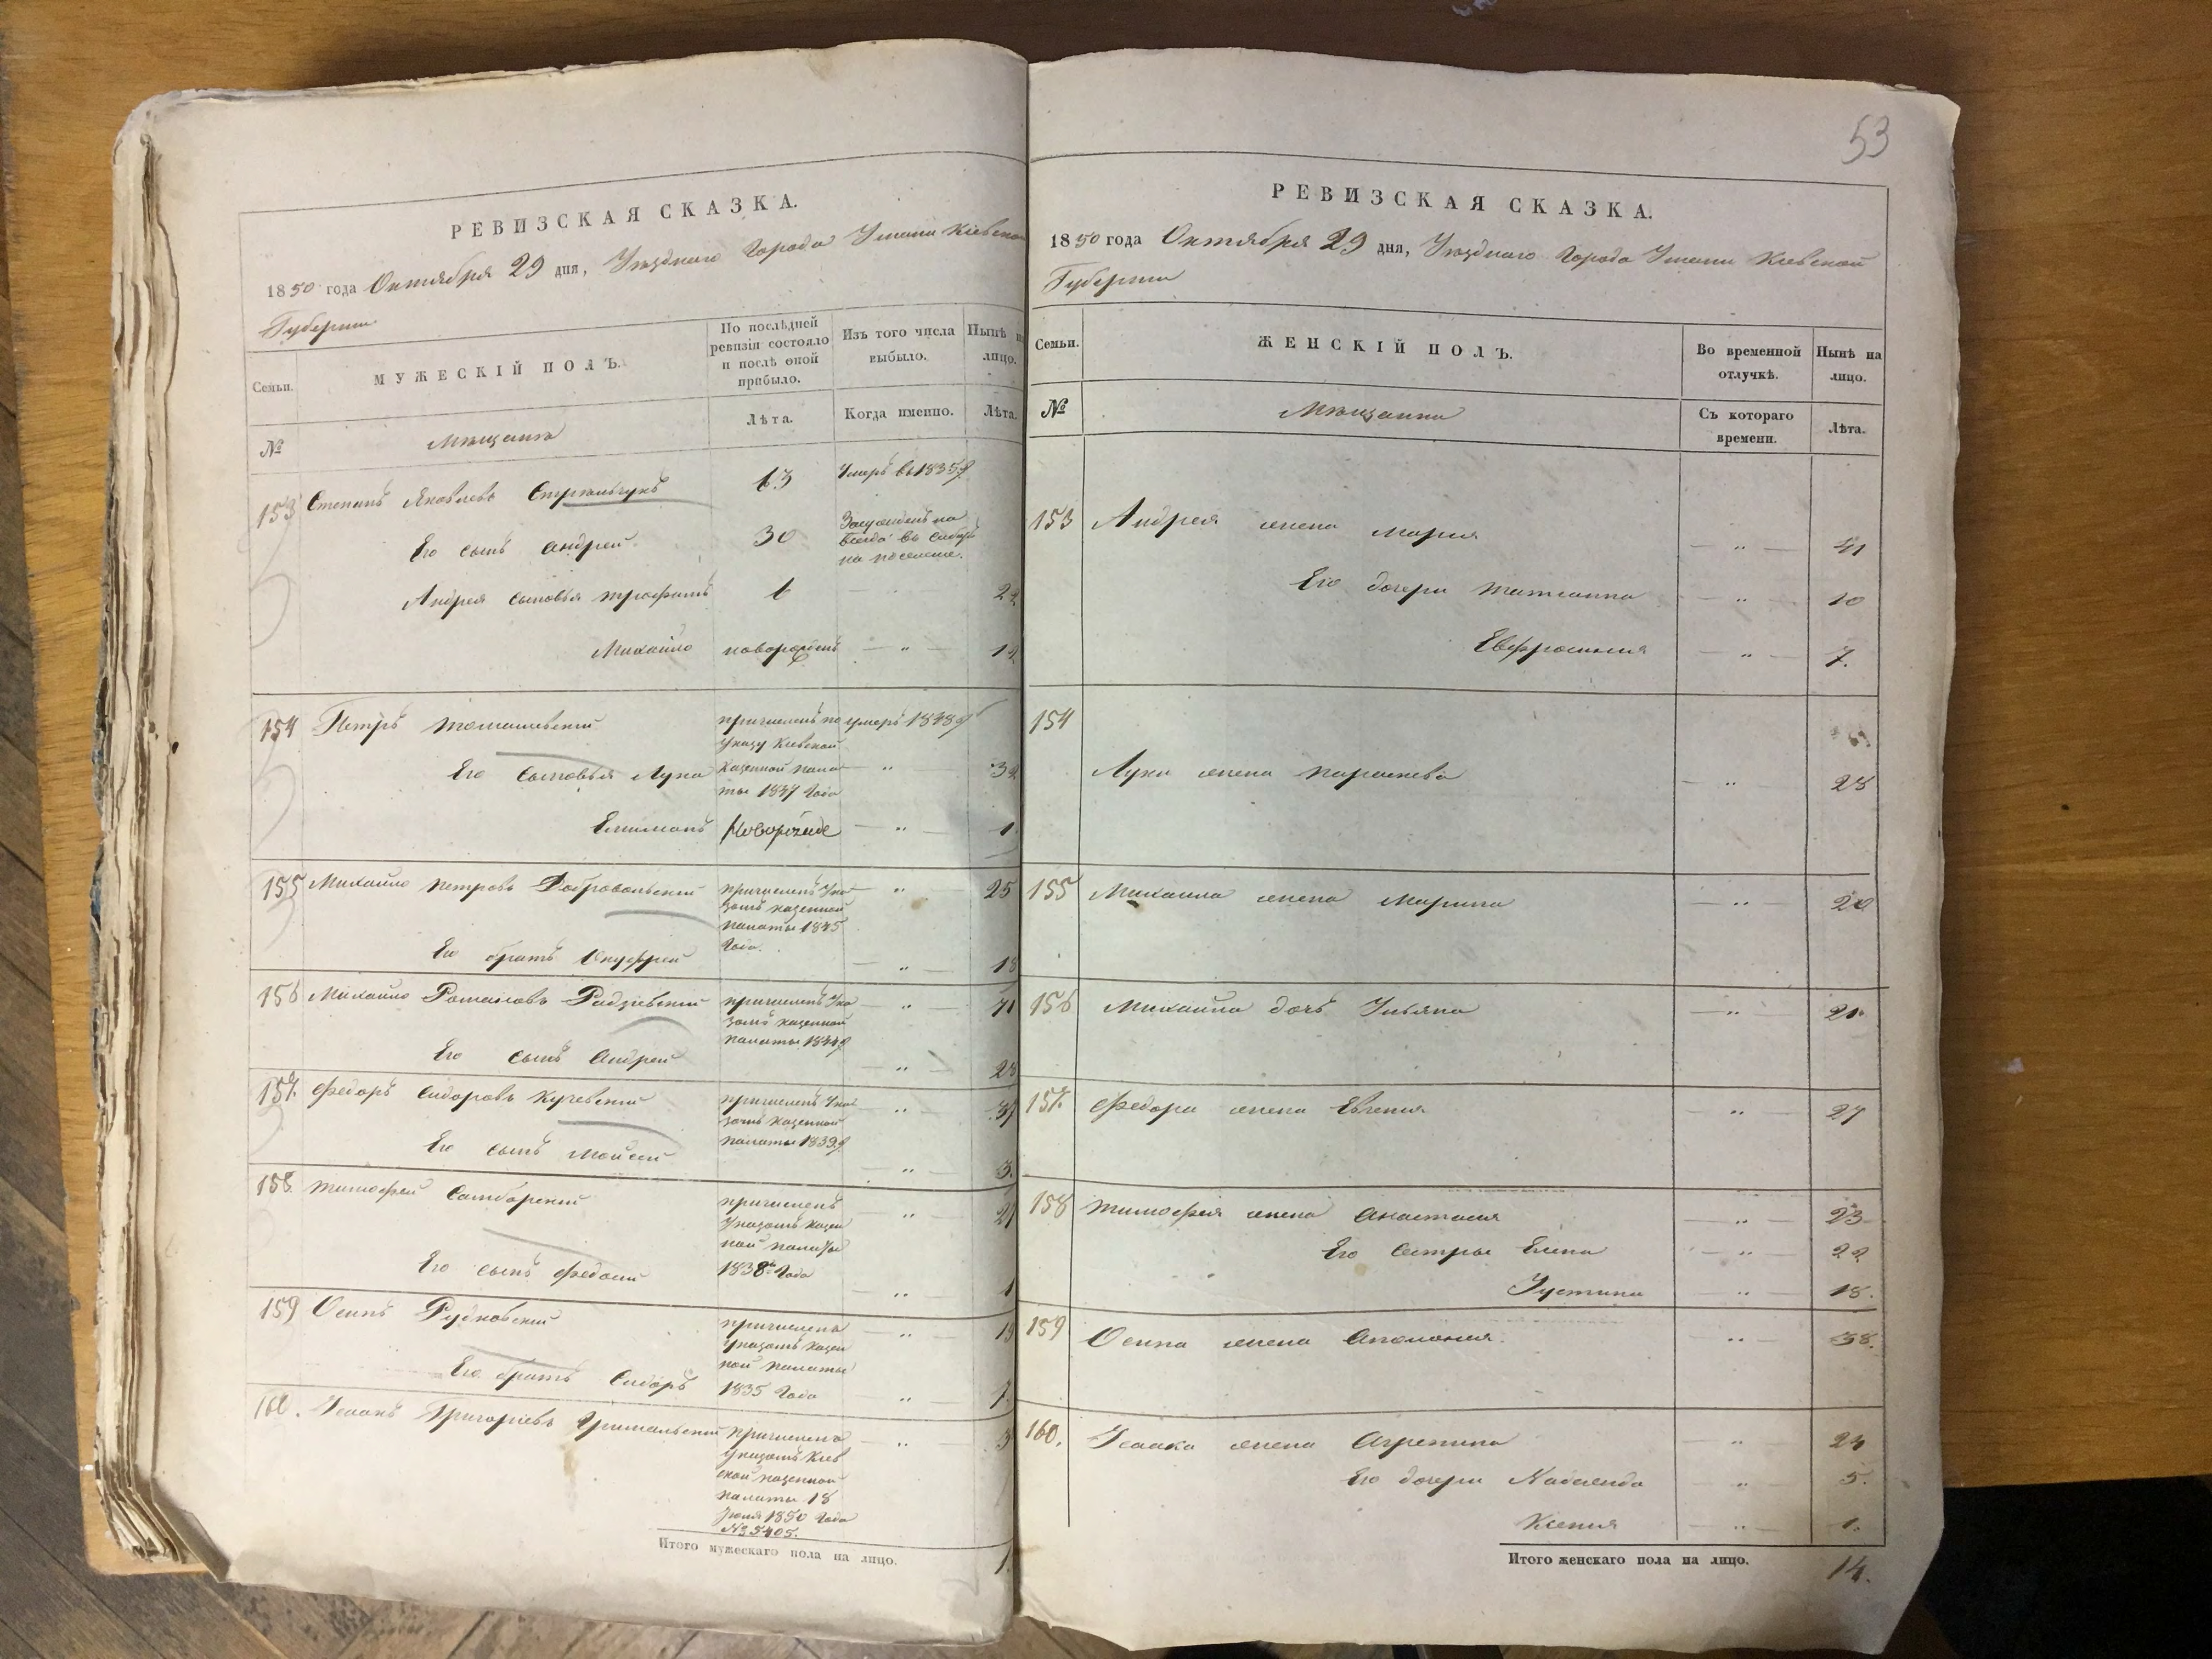 РЕВИЗСКАЯ СКАЗКА.
1850 года Октября 29 дня, Уѣзднаго Города Умани Кіевской
Губерніи
Семьи.
МУЖЕСКІЙ ПОЛЪ.
По послѣдней
ревизіи состояло
и послѣ оной
прибыло.
Изъ того числа
выбыло.
Нынѣ на
лицо.
№
Мѣщанъ
Лѣта.
Когда именно.
Лѣта.
153 Степанъ Яковлевъ Стрѣльчукъ 63 Умеръ въ 1835 г
Его сынъ Андрей 30
на
всегда въ Сибирь
на поселеніе.
Андрея сыновья Трофимъ 6
Михайло новорожденъ — „ —
154 Петръ Томашевскій причисленъ по умеръ 1848 г
указу Кіевской
Его сыновья Лука Казенной пала — „ —
ты 1837 года
новорожде — „ — 1
155 Михайло Петровъ Добровольскій причисленъ Ука — „ — 25
зомъ казенной
палаты 1845
года.
Его братъ Онуфрей — „ — 18
156 Михайло Романовъ Радзіевскій причисленъ Ука — „ — 41
зомъ казенной
палаты 1844 г
Его сынъ Андрей — „ —
157. Федоръ Сидоровъ Кучевскій причисленъ Ука — „ — 37
зомъ казенной
палаты 1839 г
Его сынъ Мойсей — „ — 3.
158. Тимофей Самборскій причисленъ — „ —
Указомъ казен
ной палаты
Его сынъ Федосій 1838 года — „ — 1
159 Осипъ Рудковскій причисленъ — „ —
указомъ казен
ной палаты
Его братъ Сидоръ 1835 года — „ — 7.
160. Исаакъ Григоріевъ причисленъ — „ —
указомъ Кіев
ской казенной
палаты 18
Іюля 1850 года
№ 5405.
Итого мужескаго пола на лицо. 1
53
РЕВИЗСКАЯ СКАЗКА.
1850 года Октября 29 дня, Уѣзднаго Города Умани Кіевской
Губерніи
Семьи.
ЖЕНСКІЙ ПОЛЪ.
Во временной
отлучкѣ.
Нынѣ на
лицо.
№
Мѣщанки
Съ котораго
времени.
Лѣта.
153 Андрея жена Марія — „ — 41
Его дочери Татіанна — „ — 10
Евфросинія — „ — 7.
154
Луки жена Параскева — „ — 28
155 Михаила жена Марина — „ — 20
156 Михайла дочь Ульяна — „ —
157. Федора жена Евгенія — „ — 27
158 Тимофея жена Анастасія — „ — 23
Его сестры Елена — „ — 22
Іустина — „ — 18.
159 Осипа жена Аполонія — „ — 38.
160. Исаака жена Агрепина „ 24
Его дочери Надежда „ 5.
Ксенія — „ — 1.
Итого женскаго пола на лицо. 14.